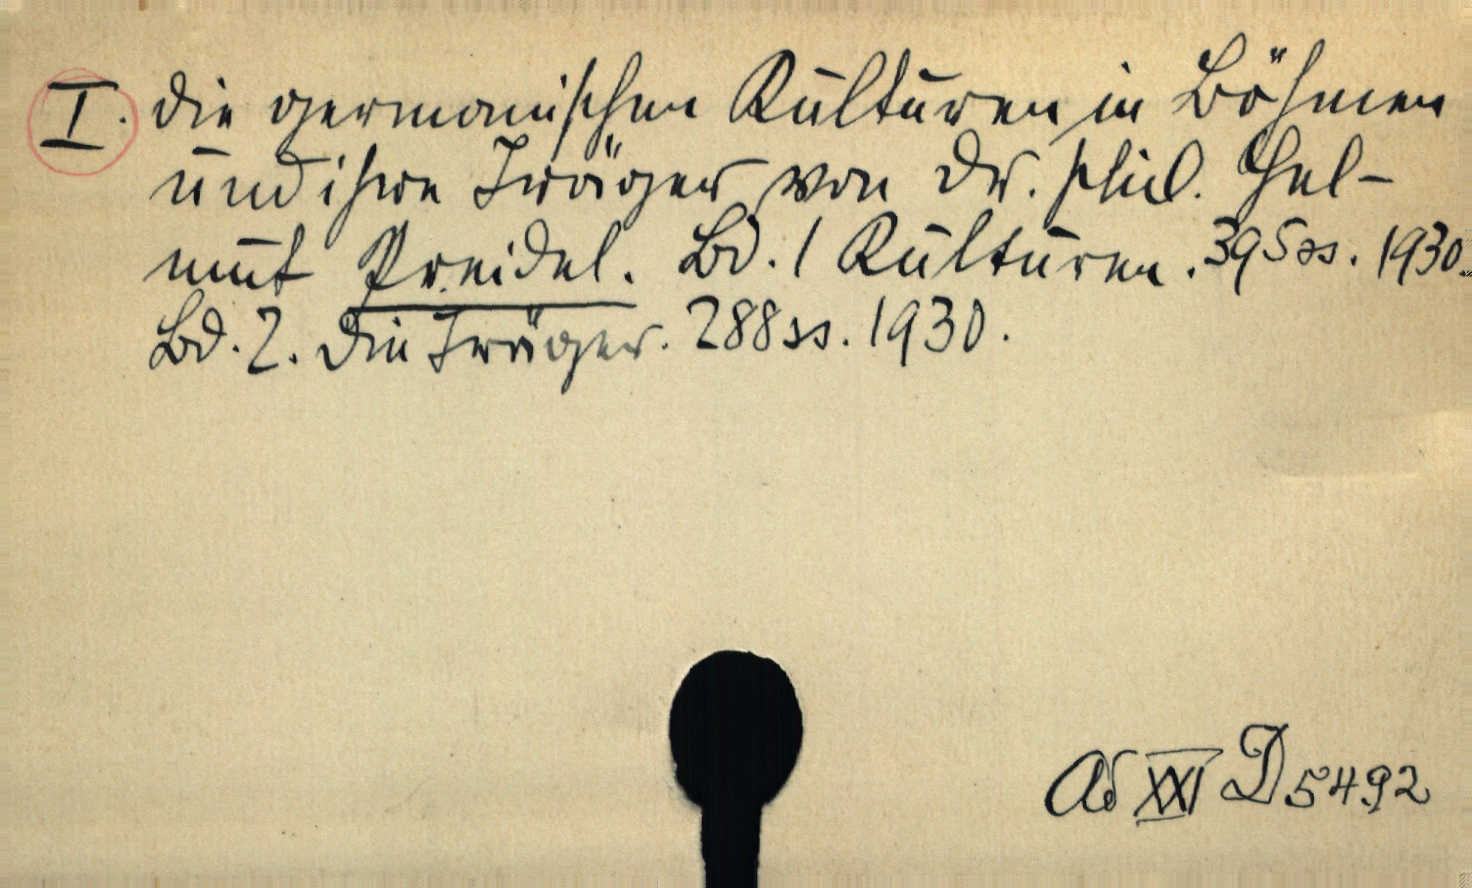 I. Die germanischen Kulturen in Böhmen
und ihre Träger von Dr. phil. Hel-
mut Preidel. Bd. 1 Kulturen. 395 ss. 1930.
Bd. 2. Die Träger. 288 ss. 1930.
Ad XXI D 5492